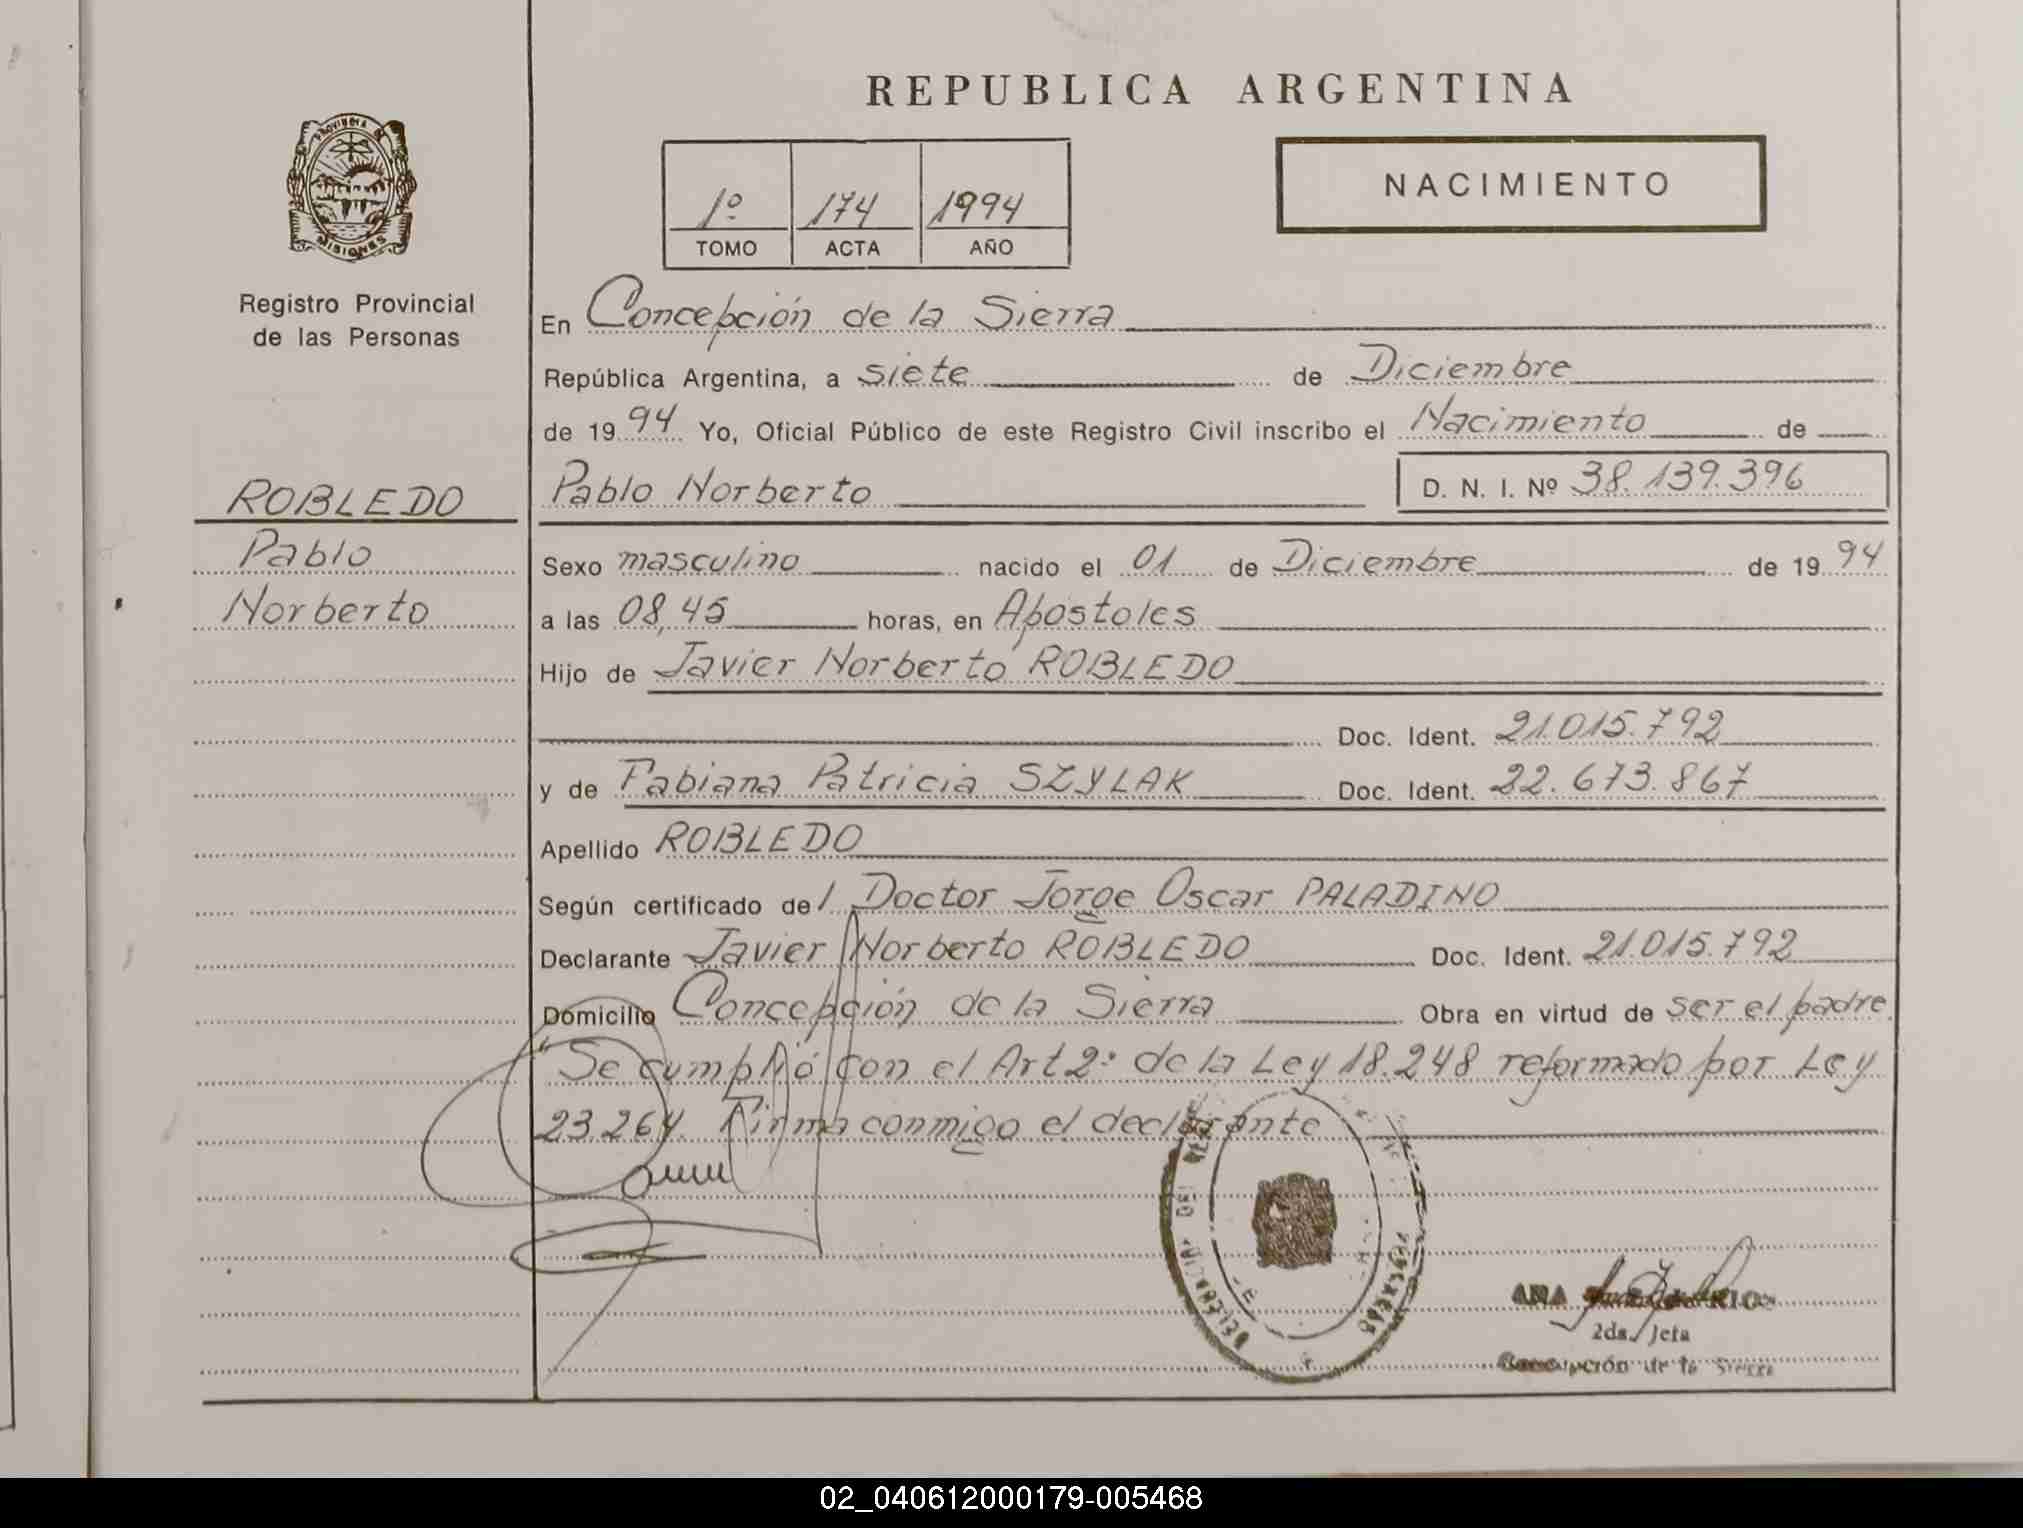 REPUBLICA ARGENTINA
PROVINCIA DE
MISIONES
Registro Provincial
de las Personas
1º 174 1994
TOMO ACTA AÑO
NACIMIENTO
En Concepción de la Sierra
República Argentina, a siete de Diciembre
de 1994 Yo, Oficial Público de este Registro Civil inscribo el Nacimiento de
ROBLEDO
Pablo
Norberto
Pablo Norberto D. N. I. Nº 38.139.396
Sexo masculino nacido el 01 de Diciembre de 1994
a las 08,45 horas, en Apóstoles
Hijo de Javier Norberto ROBLEDO
Doc. Ident. 21.015.792
y de Fabiana Patricia SZYLAK Doc. Ident. 22.673.867
Apellido ROBLEDO
Según certificado del Doctor Jorge Oscar PALADINO
Declarante Javier Norberto ROBLEDO Doc. Ident. 21.015.792
Domicilio Concepción de la Sierra Obra en virtud de ser el padre.
"Se cumplió con el Art 2º de la Ley 18.248 reformado por Ley
23.264. Firma conmigo el declarante
ANA RIOS
2da. Jefa
Concepción de la Sierra
02_040612000179-005468